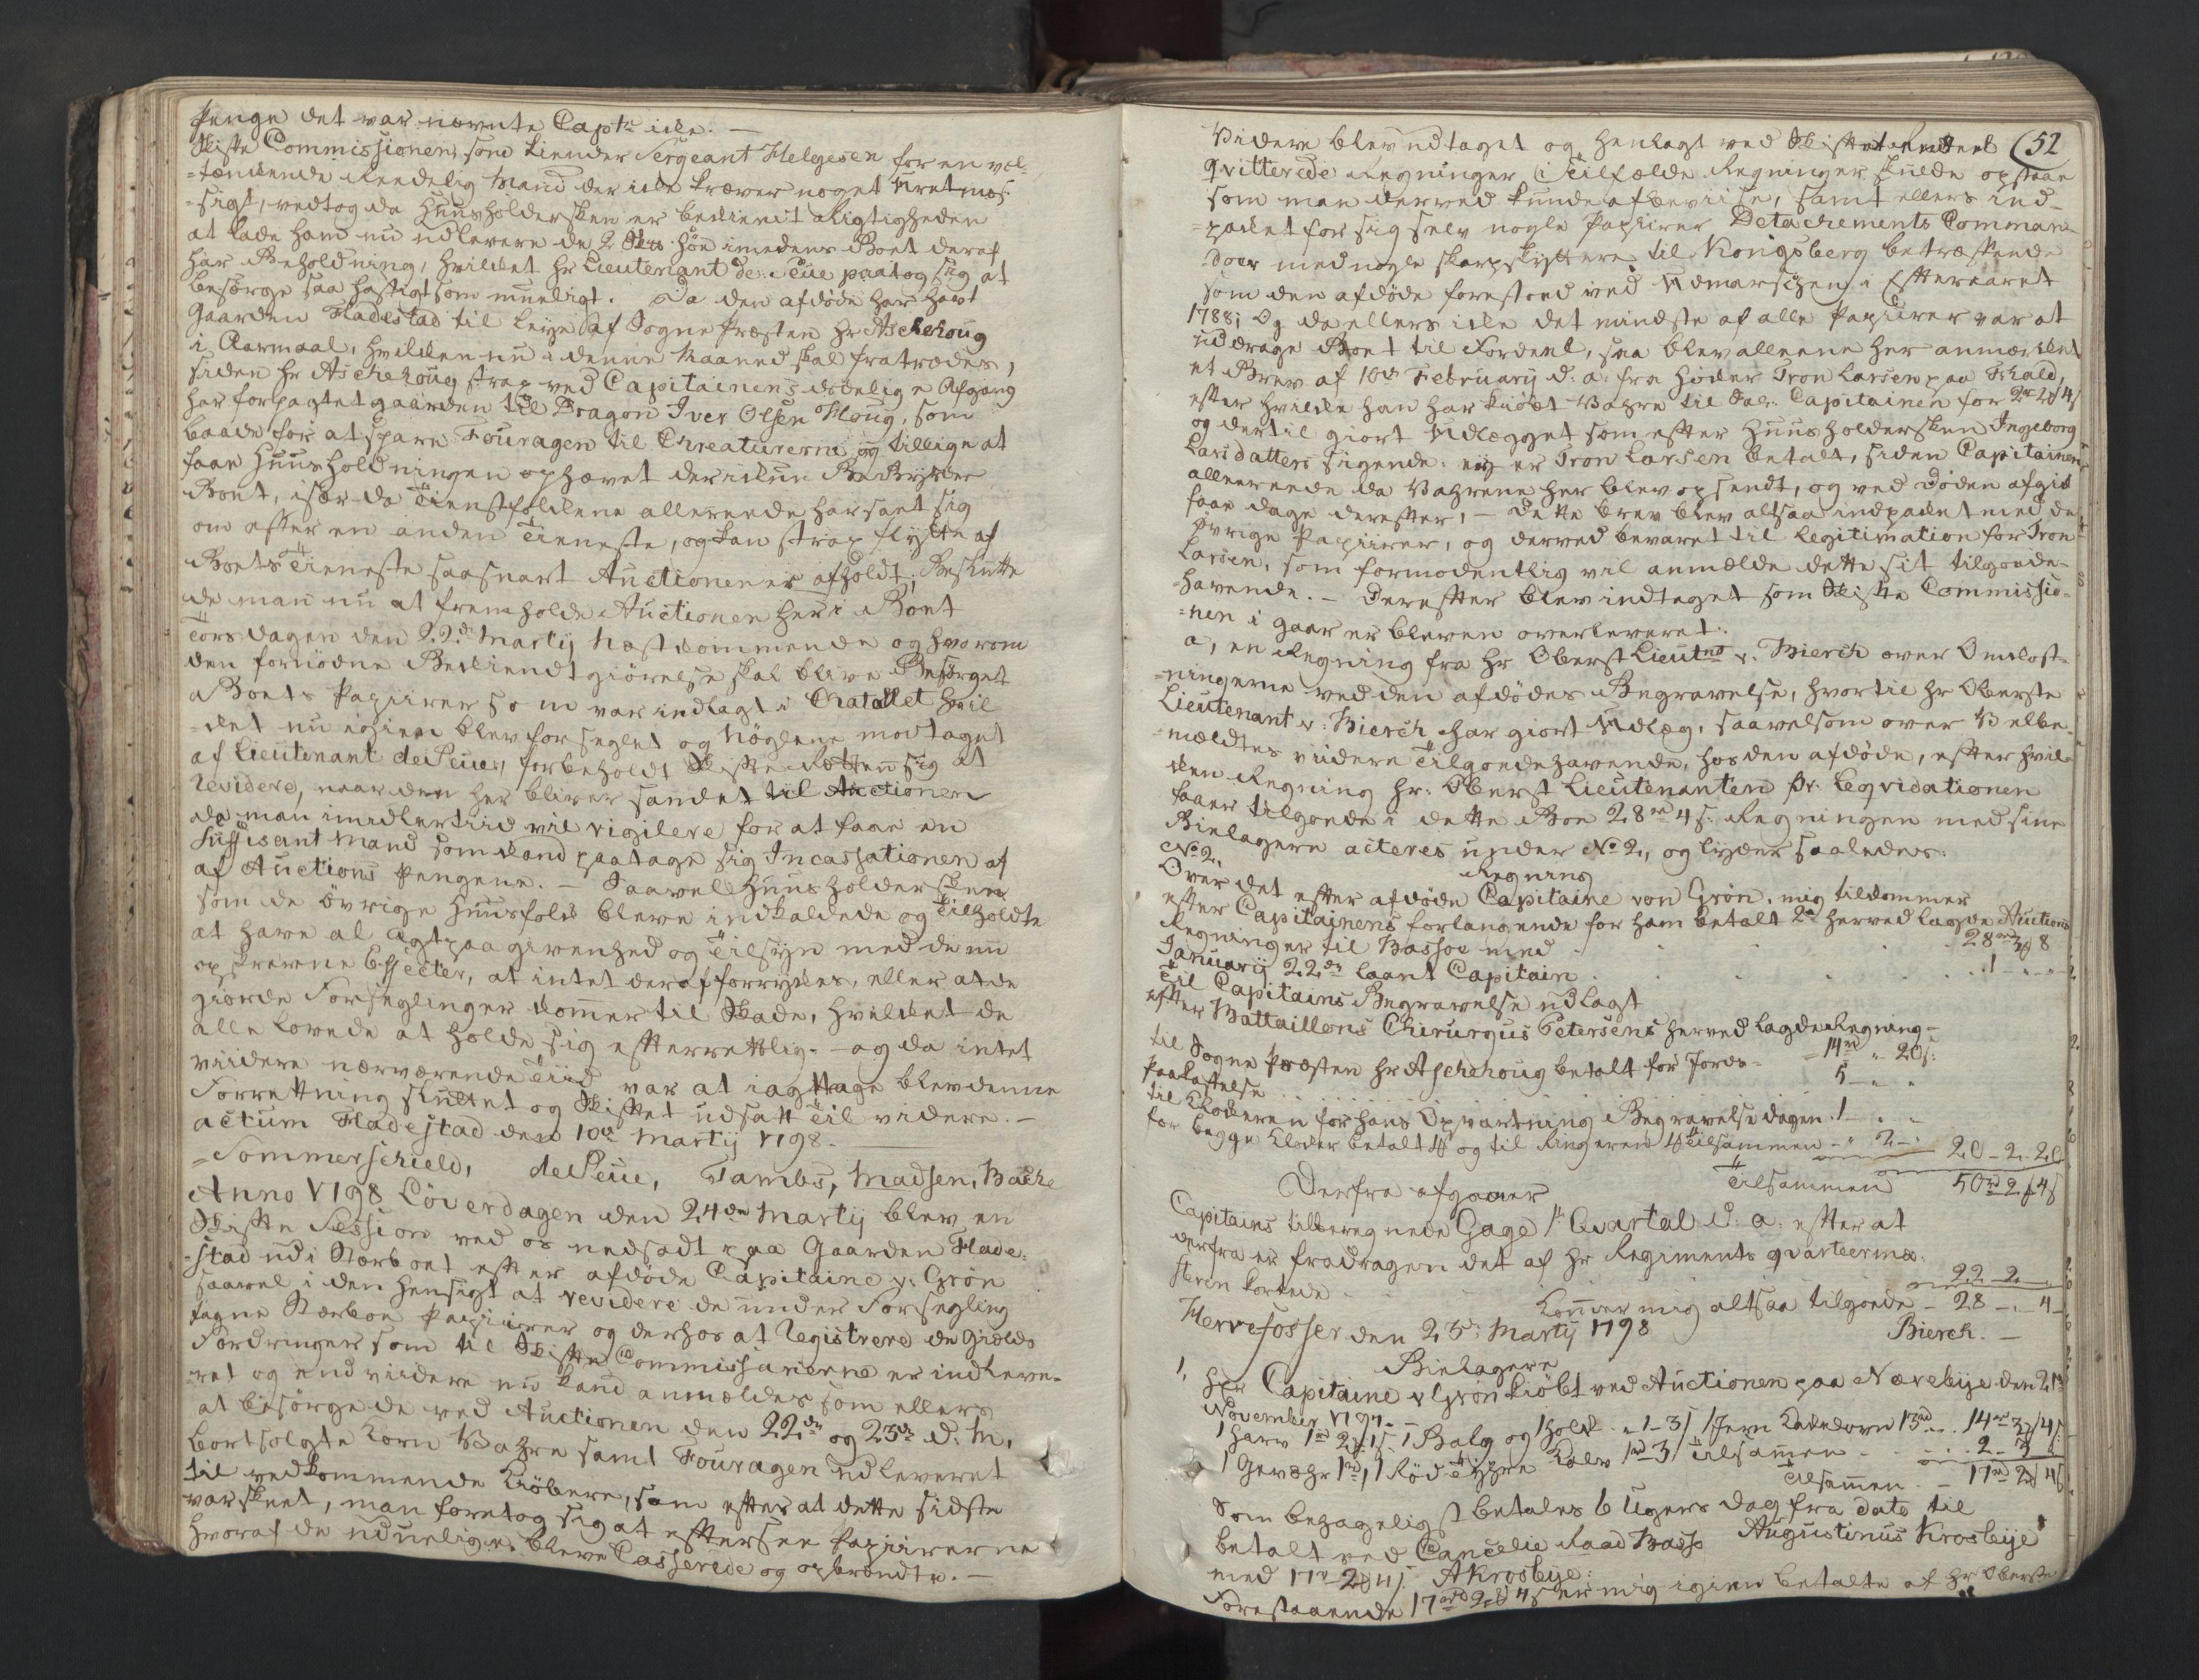 penge det var nævnte Captn icke. —
Skifte Commissionen, som kiender Sergeant Helgesen for en vel-
=tænckende Reedelig Mand der icke kræver noget Uretmæs-
=sigt, vedtog da Huusholdersken er bekiendt Rigtigheden
at lade ham nu udlevere de 2 Skrs Höe imedens Boet deraf
har Beholdning, hvilcket Hr Lieutenant de Seue paatog sig at
besörge saa hastigt som mueligt. Da den afdöde har havt
Gaarden Fladestad til Leye af Sogne Præsten Hr Aschehoug
i Aarmaal, hvilcken nu i denne Maaned skal fratrædes,
siden Hr Aschehoug strax ved Capitainens dödelige Afgang
har forpagtet gaarden til Dragon Iver Olsen Moug, som
baade for at spare Fouragen til Creaturerne og tillige at
faae Huusholdningen ophævet der ickun Bebyrder
Boet, især da Tienstfolckene allereede har sæt sig
om efter en anden Tieneste, og kan strax flytte af
Boets Tieneste saasnart Auctionen er afholdt; Beslutte
de man nu at fremholde Auctionen her i Boet
Torsdagen den 22de Martij næstkommende og hvorom
den fornödne Bekiendtgiörelse skal blive Besörget
a Boets Papiirer som var indlagt i Chatollet hvil
=cket nu igien blev forseglet og Nöglene modtaget
af Lieutenant de Seue, forbeholdt Skifte Retten sig at
revidere, naar den her bliver samlet til Auctionen
da man imidlertiid vil vigilere for at faae en
Suffisant Mand som kand paatage sig Incassationen af
af Auctions Pengene. — Saavel Huusholdersken
som de övrige Huusfolck bleve indkaldede og Tilholdte
at have al Agtpaagivenhed og Tilsyn med de nu
opskrevne Effecter, at intet deraf forryckes, eller at de
giorde Forseglinger kommer til Skade, hvilcket de
alle lovede at holde sig efterrettlig. — og da intet
viidere nærværende Tiid var at iagttage blev denne
Forretning sluttet og Skiftet udsatt Til videre. —
actum Fladestad den 10de Martij 1798.
=Sommerschield, de Seue, Tambs, Madsen, Bache
Anno 1798 Löverdagen den 24de Martij blev en
Skifte Session ved os nedsadt paa Gaarden Flade-
=stad udi Stærboet efter afdöde Capitaine v: Grön
saavel i den Hensigt at revidere de under Forsegling
tagne Stærboe Papiirer og derhos at Registrere de Giælds
Fordringer som til Skifte Commissarierne er indleve-
=ret og end viidere nu kand anmældes som ellers
at besörge de ved Auctionen den 22de og 23de d: M.
bortsolgte Korn Vahre samt Fouragen udleveret
til vedkommende Kiöbere, som efter at dette sidste
var skeet, man foretog sig at eftersee Papiirerne
hvoraf de uduelige bleve Casserede og opbrændte. —
Videre blev udtaget og henlagt ved Skiftet endeel (52
qvitterede Regninger i Tilfælde Regninger skulde opstaae
som man derved kunde afbeviise, samt ellers ind-
=packet for sig selv nogle Papiirer Detachements Comman-
doer med nogle skarpskyttere til Kongsberg betræffende
som den afdöde forestoed ved Udmarschen i Efteraaret
1788; Og da ellers icke det mindste af alle Papiirer var at
uddrage Boet til Fordeel, saa blev alleene her anmærcket
et Brev af 10de February d: a: fra Höcker Tron Larsen paa
efter hvilcke han har kiöbt Vahre til Sal: Capitainen for
og dertil giort Udlægget som efter Huusholdersken Ingeborg
Larsdatters sigende, ey er Tron Larsen betalt, siden Capitainen
allereede da Vahrene her blev opsendt, og ved döden afgick
faae dage derefter, — dette brev blev altsaa indpacket med de
övrige Papiirer, og derved bevaret til Legitimation for Tron
Larsen, som formodentlig vil anmælde dette sit tilgoede-
=havende. — Derefter blev indtaget som Skifte Commissio-
=nen i gaar er bleven overleveret:
a, en Regning fra Hr Oberst Lieutnt v. Bierch over Omkost-
=ningerne ved den afdödes Begravelse, hvortil Hr Oberste
Lieutenant v: Bierch har giort Udlæg, saavelsom over Velbe-
=meldtes viidere Tilgoedehavende, hos den afdöde, efter hvil-
cken Regning Hr: Oberst Lieutenanten pr. Leqvidationen
faaer tilgoede i dette Boe 28rd 4s: Regningen med sine
Bielagere acteres under No 2, og lyder saaledes:
No 2. Regning
Over det efter afdöde Capitaine von Grön, mig tilkommer
efter Capitainens forlangende for ham betalt 2de herved lagde Auctions
Regninger til Bassöe med . . . 28rd 3 8
Januarij 22de laant Capitain . . . 1 — „ — „
Til Capitains Begravelse udlagt
efter Battaillons Chirurgus Petersens herved lagde Regning —
14rd „ 20s:
til Sogne Præsten Hr Aschehoug betalt for Jords-
Paakastelse . . . 5 — „ „
til Klockeren for hans Opvartning Begravelsedagen . 1 — „ „
for begge Klocker betalt og til Ringeren Tilsammen — „ 2 — „ 20 – 2 – 20
Tilsammen 50rd 2 4s
Derfra afgaaer
Capitains tilberegnede Gage 1te Qvartal d: a: efter at
derfra er fradragen det af Hr Regiments qvarteerme-
steren kortede . . . 22 – 2 – „
Kommer mig altsaa tilgoede – 28 – „ 4 –
Hervefosser den 23de Martij 1798 Bierch. —
Bielagere
1, Herr Capitaine v Grön kiöbt ved Auctionen paa Næreby den 21de
November 1797. —
1 Harv 1rd 2 1s. 1 Balg og 1 Holk „ 1 – 3 1 Jern Kakkelovn 13rd „ . 14rd 3 4s
1 Gevæhr 1rd, 1 Röd Kalv 1rd 3 Tilsammen . . . 2 – 3
Tilsammen – 17rd 2 4s
Som behageligst betales 6 Ugers dag fra dato til
betalt ved Cancelie Raad Bassö Augustinus Krosbye
med 17rd 2 4s. AKrosbye:
Forestaaende 17rd 2 4s er mig igien betalte af Hr Oberste